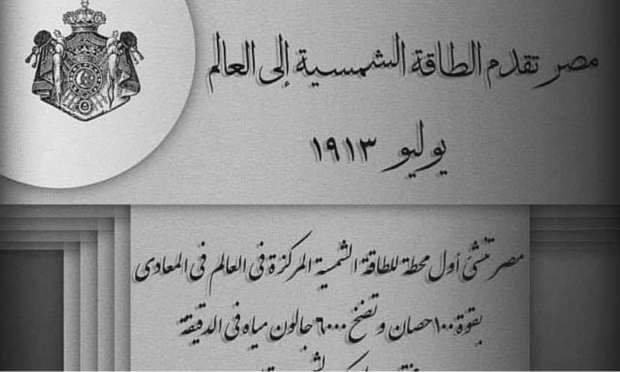 مصر تقدم الطاقة الشمسية إلى العالم
يوليو ١٩١٣
مصر تنشئ أول محطة للطاقة الشمسية المركزة في العالم في المعادى
بقوة ١٠٠ حصان وتضخ ٦٠٠٠ جالون مياه في الدقيقة